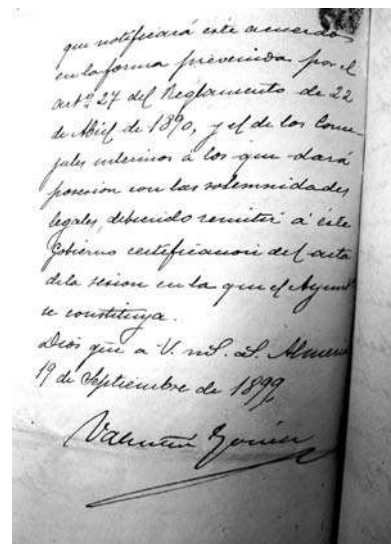 que notificará este acuerdo
en la forma prevenida por el
artº 27 del Reglamento de 22
de Abril de 1890, y el de los Conce-
jales interinos á los que dará
posesion con las solemnidades
legales, debiendo remitir á éste
Gobierno certificacion del acta
de la sesion en la que el Ayuntº
se constituya.
Dios gue a V. ms. as. Almeria
19 de Septiembre de 1899
Valentin